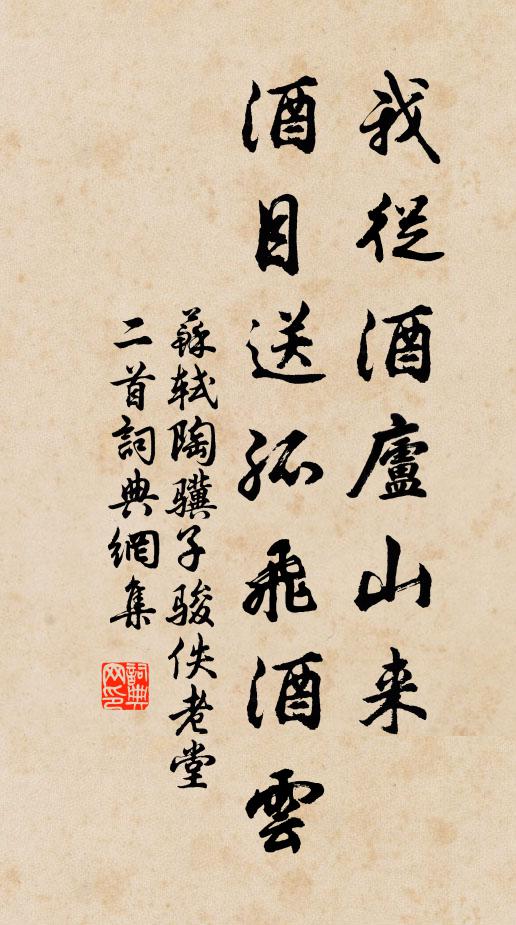 我從酒廬山来
酒目送孤飛酒雲
蘇軾陶驥子駿佚老堂
二首詞典網集
詞典网印